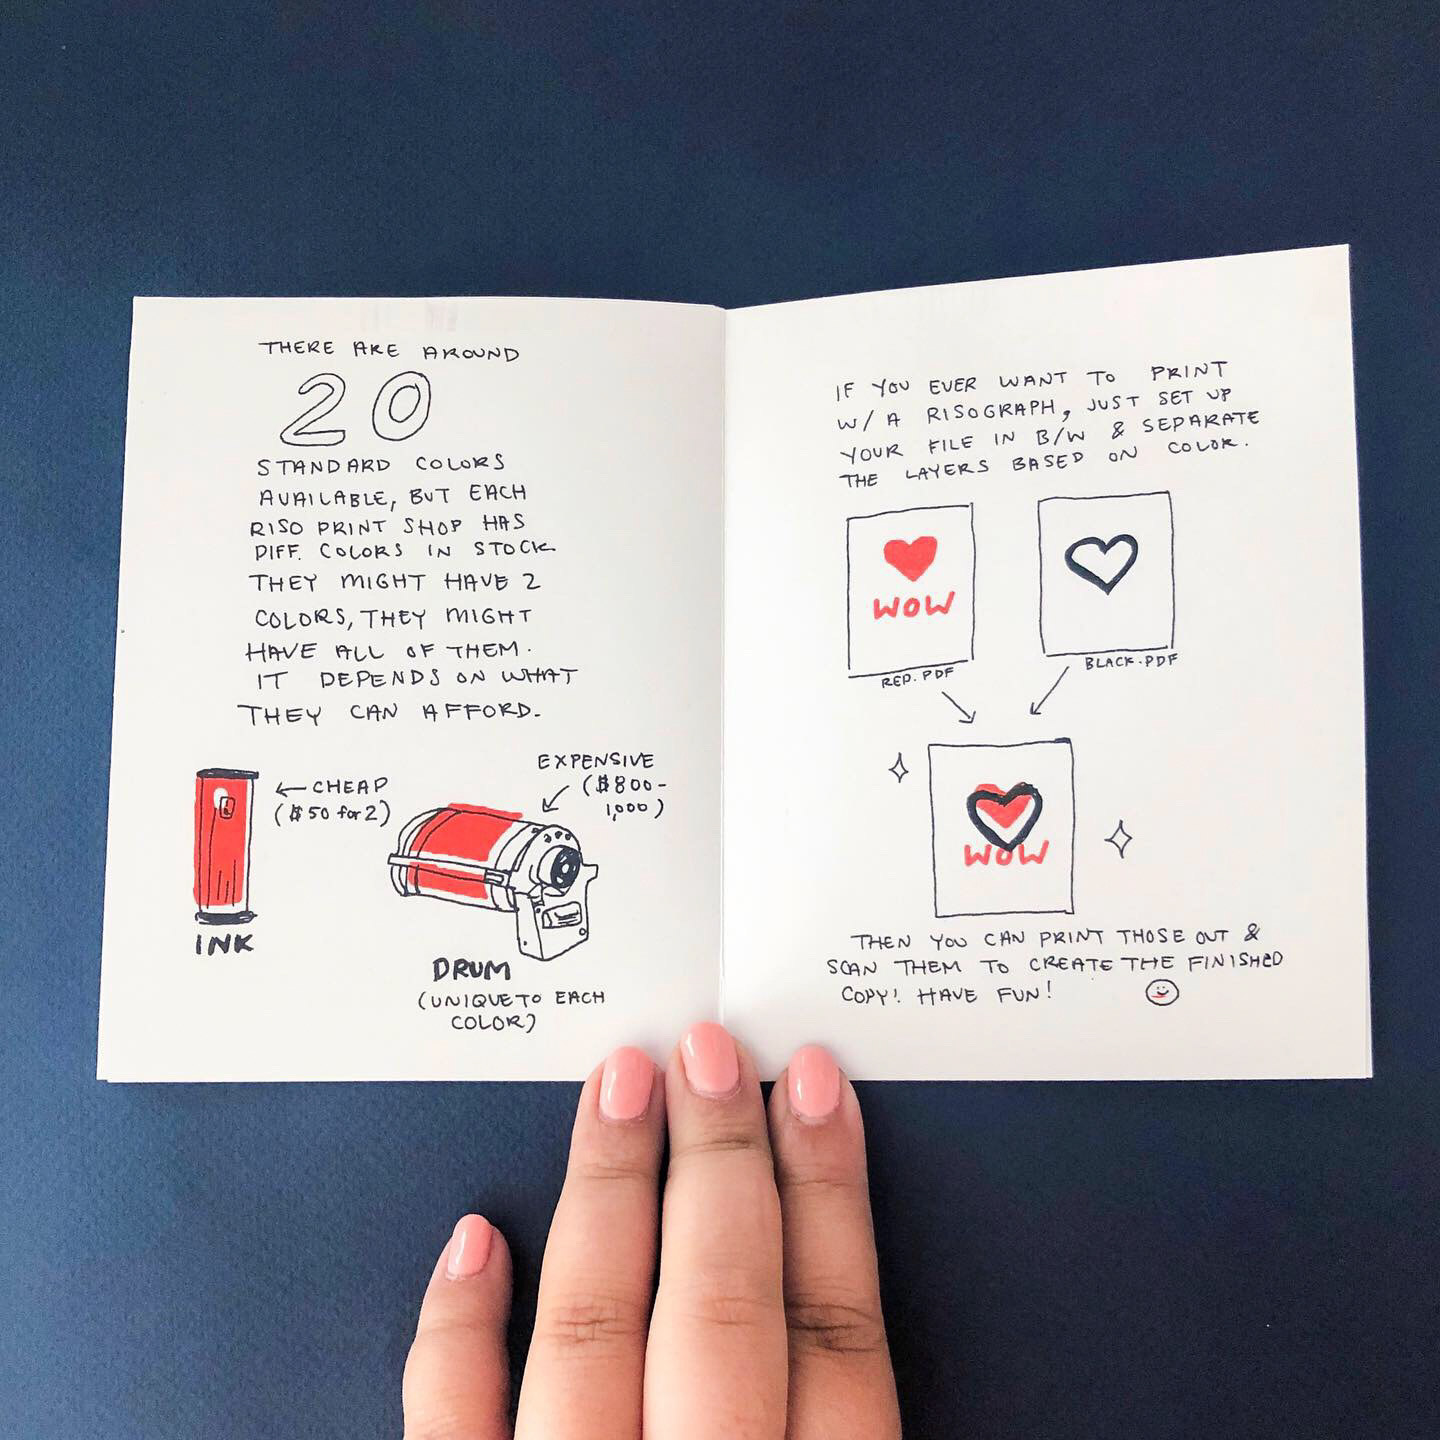 THERE ARE AROUND
20
STANDARD COLORS
AVAILABLE, BUT EACH
RISO PRINT SHOP HAS
DIFF. COLORS IN STOCK.
THEY MIGHT HAVE 2
COLORS, THEY MIGHT
HAVE ALL OF THEM.
IT DEPENDS ON WHAT
THEY CAN AFFORD.
← CHEAP
($50 for 2)
INK
EXPENSIVE
($800-
1,000)
DRUM
(UNIQUE TO EACH
COLOR)
IF YOU EVER WANT TO PRINT
W/ A RISOGRAPH, JUST SET UP
YOUR FILE IN B/W & SEPARATE
THE LAYERS BASED ON COLOR.
WOW
RED.PDF
BLACK.PDF
WOW
THEN YOU CAN PRINT THOSE OUT &
SCAN THEM TO CREATE THE FINISHED
COPY! HAVE FUN!